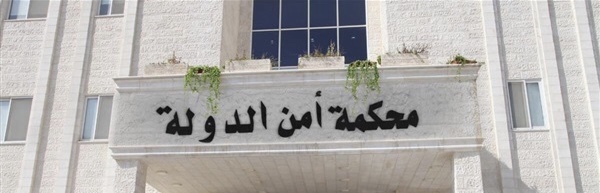 محكمة أمن الدولة